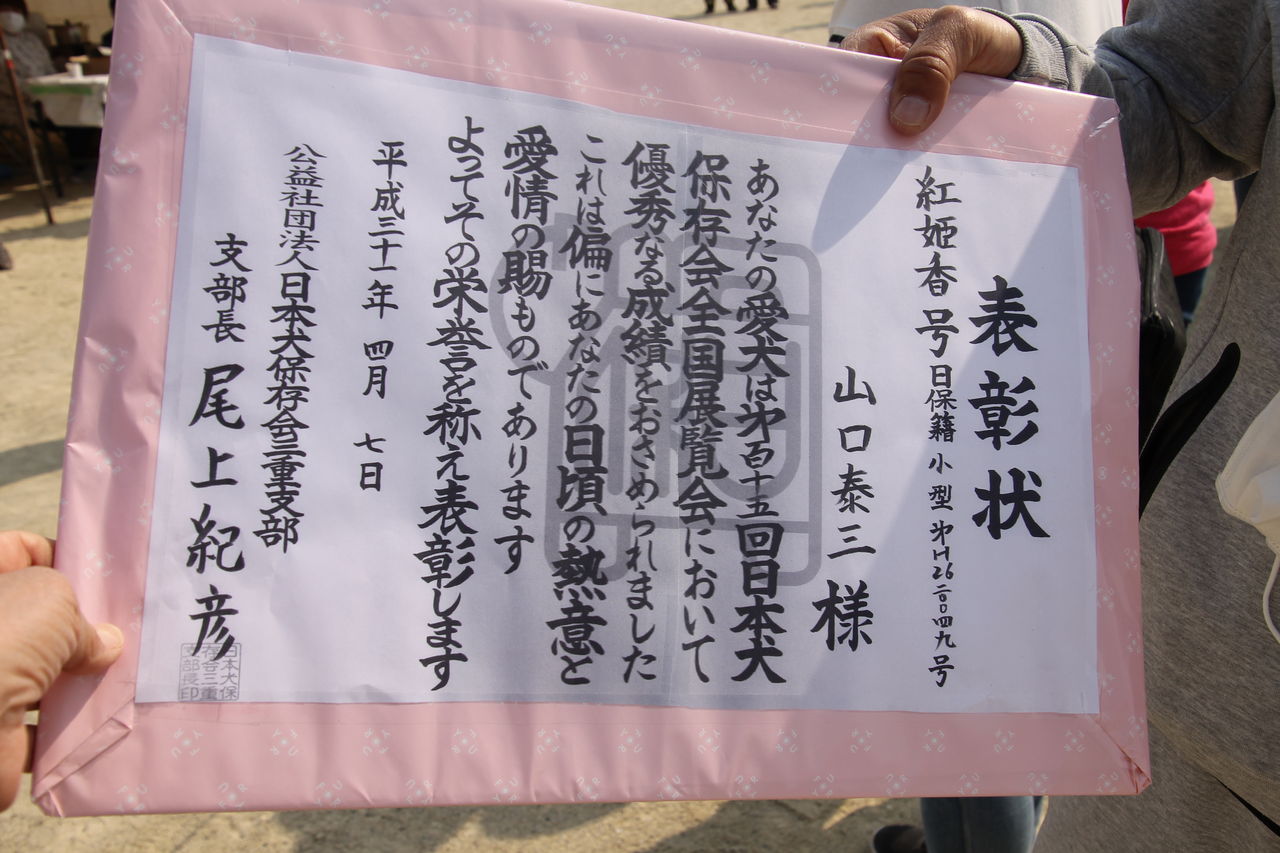 表彰状
紅姫香号 日保籍 小型 㐧H26二〇〇四九号
山口泰三様
あなたの愛犬は㐧百十五回日本犬
保存会全国展覧会において
優秀なる成績をおさめられました
これは偏にあなたの日頃の熱意と
愛情の賜ものであります
よってその栄誉を称え表彰します
平成三十一年 四月 七日
公益社団法人日本犬保存会三重支部
支部長 尾上紀彦
日本犬保
存会三重
支部長印